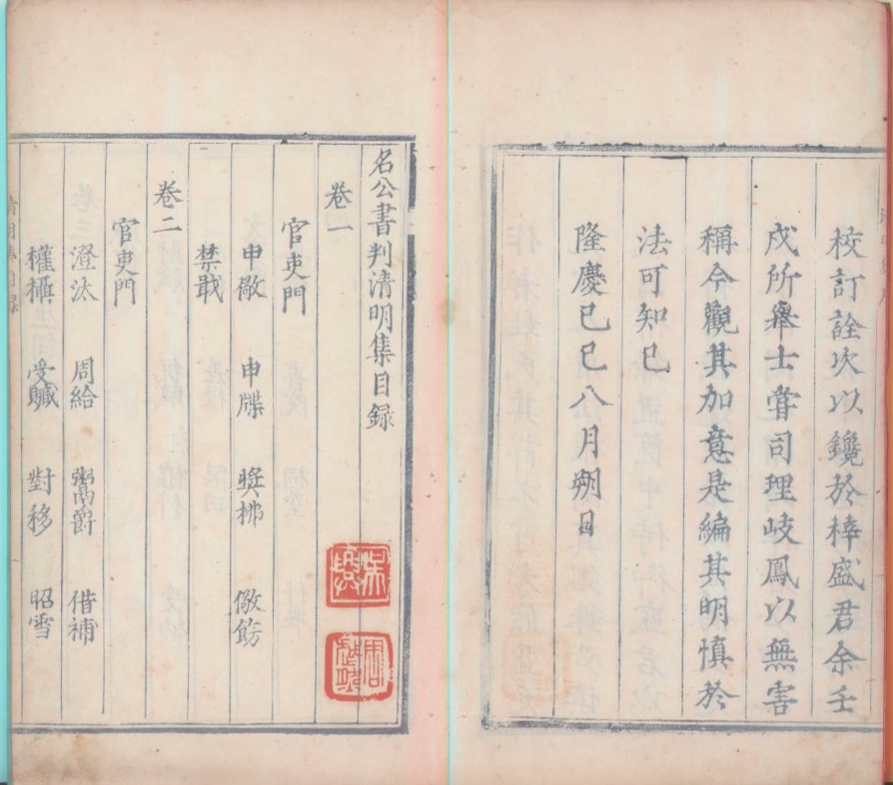 校訂詮次以鑱於梓盛君余壬
戌所舉士甞司理岐鳳以無害
稱今觀其加意是編其明慎於
法可知已
隆慶己巳八月朔日
名公書判清明集目録
卷一
官吏門
申儆 申牒 奬拂 儆飭
禁戢
卷二
官吏門
澄汰 周給 鬻爵 借補
權攝 受贓 對移 昭雪